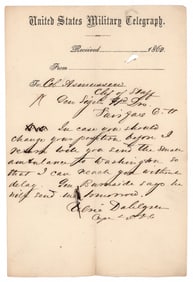 United States Military Telegraph.
Received 186
From
To Col Asmussen
Chf of Staff
Gen Sigels Hd Qrs
Fairfax C. H.
In case you should
change your position before I
return will you send the small
ambulance to Washington so
that I can reach you without
delay. Gen Burnside says he
will send me tomorrow.
Ulric Dahlgren
Capt &